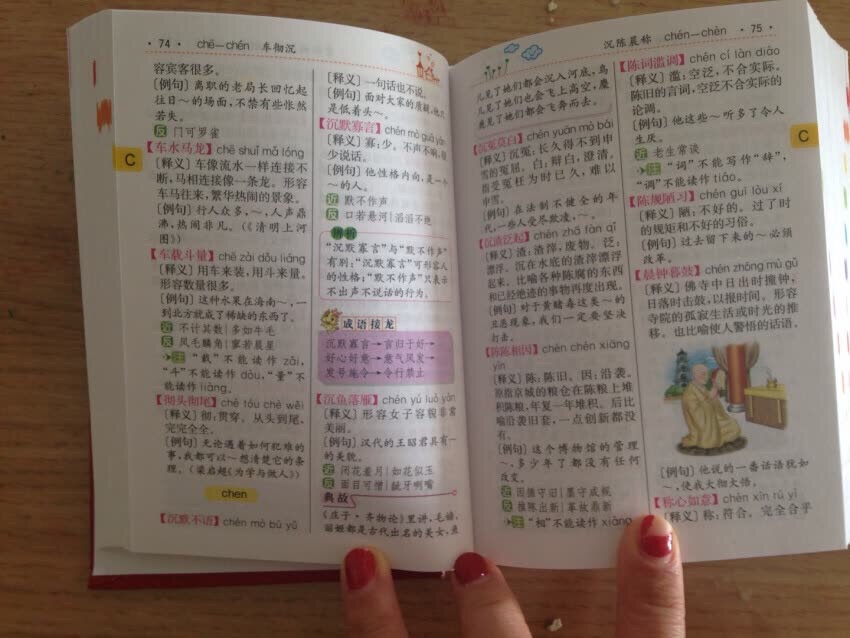 ·74· chē—chén 车彻沉
容宾客很多。
[例句] 离职的老局长回忆起
往日~的场面,不禁有些怅然
若失。
反 门可罗雀
C
【车水马龙】chē shuǐ mǎ lóng
[释义] 车像流水一样连接不
断,马相连接像一条龙。形容
车马往来,繁华热闹的景象。
[例句] 行人众多,~,人声鼎
沸,热闹非凡。(《清明上河
图》)
【车载斗量】chē zài dǒu liáng
[释义] 用车来装,用斗来量。
形容数量很多。
[例句] 这种水果在海南~,一
到北方就成了稀缺的东西了。
近 不计其数|多如牛毛
反 凤毛麟角|寥若晨星
注 “载”不能读作 zǎi,
“斗”不能读作 dòu,“量”不
能读作 liàng。
【彻头彻尾】chè tóu chè wěi
[释义] 彻:贯穿。从头到尾,
完完全全。
[例句] 无论遇着如何犯难的
事,我都可以~想清楚它的条
理。(梁启超《为学与做人》)
chen
【沉默不语】chén mò bù yǔ
[释义] 一句话也不说。
[例句] 面对大家的质疑,他只
是低着头~。
【沉默寡言】chén mò guǎ yán
[释义] 寡:少。不声不响,很
少说话。
[例句] 他性格内向,是一个
~的人。
近 默不作声
反 口若悬河|滔滔不绝
辨析
“沉默寡言”与“默不作声”
有别:“沉默寡言”可形容人
的性格;“默不作声”只表示
不出声不说话的行为。
成语接龙
沉默寡言→言归于好→
好心好意→意气风发→
发号施令→令行禁止
【沉鱼落雁】chén yú luò yàn
[释义] 形容女子容貌非常
美丽。
[例句] 汉代的王昭君具有~
的美貌。
近 闭花羞月|如花似玉
反 面目可憎|龇牙咧嘴
典故
《庄子·齐物论》里讲,毛嫱、
丽姬都是古代出名的美女,鱼
沉陈晨称 chén—chèn ·75·
儿见了她们都会沉入河底,鸟
儿见了她们也会飞上高空,麋
鹿见了她们都会飞奔而去。
【沉冤莫白】chén yuān mò bái
[释义] 沉冤:长久得不到申
雪的冤屈。白:辩白,澄清。
指受冤枉为时已久,难以
申雪。
[例句] 在法制不健全的年
代,一些人受尽欺凌,~。
【沉渣泛起】chén zhā fàn qǐ
[释义] 渣:渣滓,废物。泛:
漂浮。沉在水底的渣滓漂浮
起来。比喻各种陈腐的东西
和已经绝迹的事物再度出现。
[例句] 对于黄赌毒这类~的
丑恶现象,我们一定要坚决
打击。
【陈陈相因】chén chén xiāng
yīn
[释义] 陈:陈旧。因:沿袭。
原指京城的粮仓在陈粮上堆
积陈粮,年复一年堆积。后比
喻沿袭旧套,一点创新都没
有。
[例句] 这个博物馆的管理
~,多少年了都没有任何
改变。
近 因循守旧|墨守成规
反 推陈出新|革故鼎新
注 “相”不能读作 xiàng
【陈词滥调】chén cí làn diào
[释义] 滥:空泛,不合实际。
陈旧的言词,空泛不合实际的
论调。
[例句] 他这些~听多了令人
生厌。
近 老生常谈
注 “词”不能写作“辞”,
“调”不能读作 tiáo。
C
【陈规陋习】chén guī lòu xí
[释义] 陋:不好的。过了时
的规矩和不好的习俗。
[例句] 过去留下来的~必须
改革。
【晨钟暮鼓】chén zhōng mù gǔ
[释义] 佛寺中日出时撞钟,
日落时击鼓,以报时间。形容
寺院的孤寂生活或时光的推
移。也比喻使人警悟的话语。
[例句] 他说的一番话语犹如
~,使我大彻大悟。
【称心如意】chèn xīn rú yì
[释义] 称:符合。完全合乎